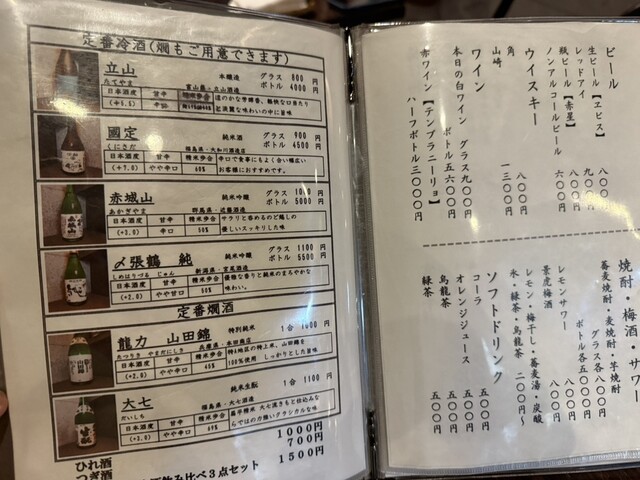 定番冷酒(燗もご用意できます)
立山 本醸造 グラス 800円
たてやま 富山県・立山酒造 ボトル 4000円
日本酒度 甘辛 精米歩合
國定 純米酒 グラス 900円
くにさだ 福島県・大和川酒造 ボトル 4500円
日本酒度 甘辛 精米歩合 辛口で食事にもよく合い幅広い
(+7.0) やや辛口 60% お客様におすすめです。
赤城山 純米吟醸 グラス 1000円
あかぎやま 群馬県・近藤酒造 ボトル 5000円
日本酒度 甘辛 精米歩合 サラリと呑めるのど越しの
(+3.0) やや辛口 優しいスッキリした味
〆張鶴 純 純米吟醸 グラス 1100円
しめはりづる じゅん 新潟県・宮尾酒造 ボトル 5500円
日本酒度 甘辛 精米歩合 優雅な香りと純米のまろやかな
(+2.0) やや辛口 50% 味わい。
定番燗酒
龍力 山田錦 特別純米 1合 1000円
たつりき やまだにしき 兵庫県・本田商店
日本酒度 甘辛 精米歩合 特A地区の特上米、山田錦を
(+2.0) やや辛口 65% 100%使用 しっかりとした旨味
大七 純米生酛 1合 1100円
だいしち 福島県・大七酒造
日本酒度 甘辛 精米歩合
(+3.0) やや辛口 らではの力強いクラシカルな味
ひれ酒 1000円
つぎ酒 700円
飲み比べ3点セット 1500円
ビール
生ビール【ヱビス】 八〇〇円
レッドアイ 九〇〇円
瓶ビール【赤星】 八〇〇円
ノンアルコールビール 六〇〇円
ウイスキー
角 八〇〇円
山崎 一三〇〇円
ワイン
本日の白ワイン グラス九〇〇円
ボトル五六〇〇円
赤ワイン【テンプラニーリョ】
ハーフボトル三〇〇〇円
焼酎・梅酒・サワー
蕎麦焼酎・麦焼酎・芋焼酎
グラス各八〇〇円
景虎梅酒 八〇〇円
レモンサワー 八〇〇円
レモン・梅干し・蕎麦湯・炭酸
氷・緑茶・烏龍茶 二〇〇円〜
ソフトドリンク
コーラ 五〇〇円
オレンジジュース 五〇〇円
烏龍茶 五〇〇円
緑茶 五〇〇円